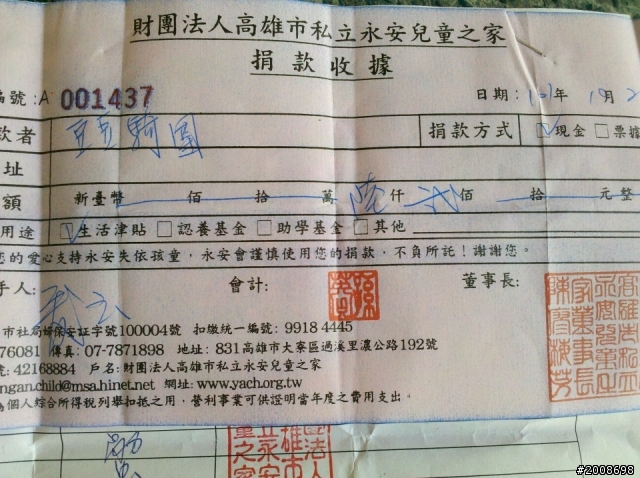 財團法人高雄市私立永安兒童之家
捐款收據
編號:A 001437 日期:101年10月2
款者 豆豆騎團 捐款方式 ☑現金 □票據
址
額 新臺幣 佰 拾 萬 陸仟 貳佰 拾 元整
用途 ☑生活津貼 □認養基金 □助學基金 □其他
您的愛心支持永安失依孩童,永安會謹慎使用您的捐款,不負所託!謝謝您。
手人: 會計: 董事長:
市社局婦保安証字號100004號 扣繳統一編號: 9918 4445
76081 傳真: 07-7871898 地址: 831高雄市大寮區過溪里濃公路192號
號: 42168884 戶名: 財團法人高雄市私立永安兒童之家
ngan.child@msa.hinet.net 網址: www.yach.org.tw
為個人綜合所得稅列舉扣抵之用,營利事業可供證明當年度之費用支出。
#2008698